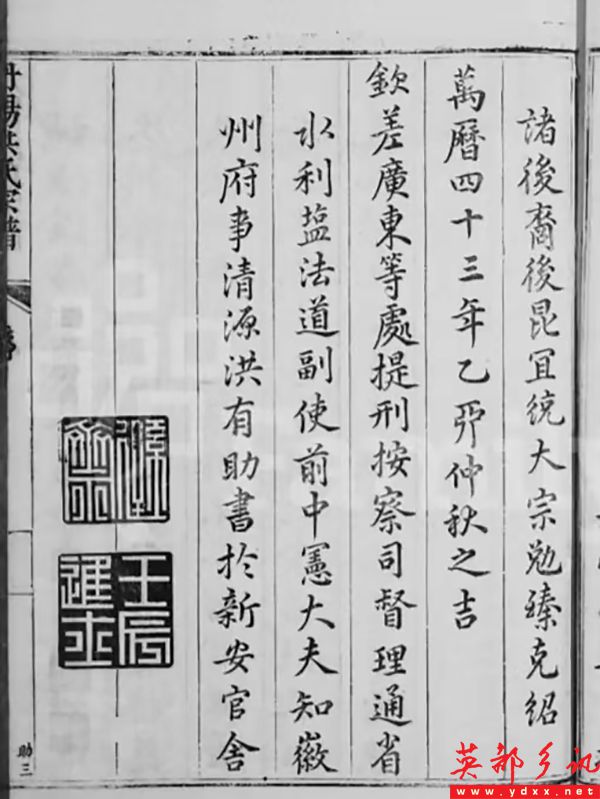 諸後裔後昆宜统大宗勉臻克紹
萬曆四十三年乙夘仲秋之吉
欽差廣東等處提刑按察司督理通省
水利盐法道副使前中憲大夫知徽
州府事清源洪有助書扵新安官舍
壬辰進士
洪氏宗譜
助三
英都乡讯
www.ydxx.net